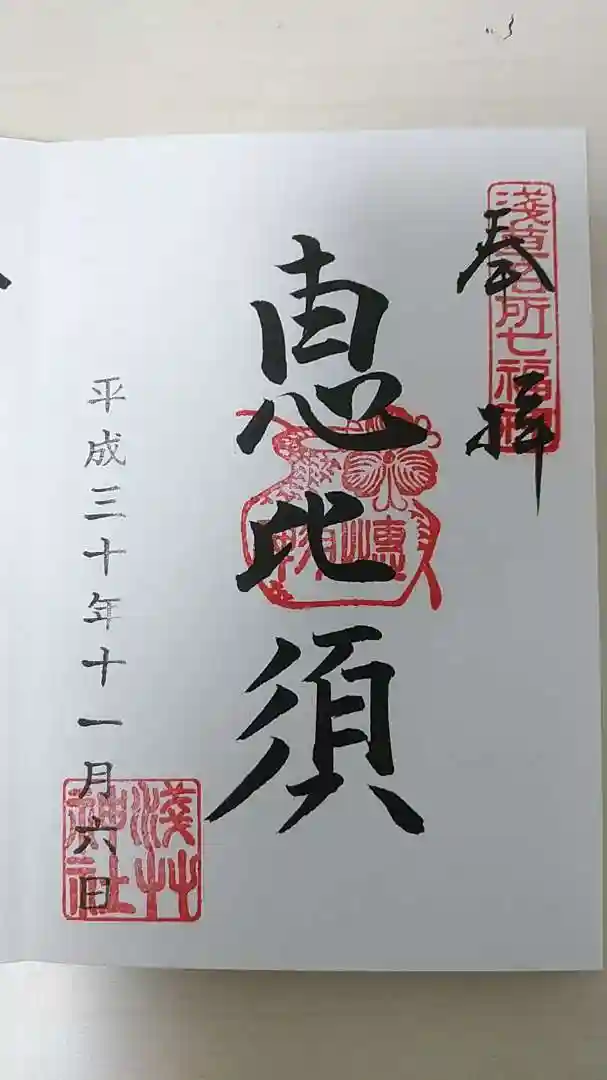 奉拝
淺草名所七福神
恵比須
平成三十年十一月六日
淺艸
神社